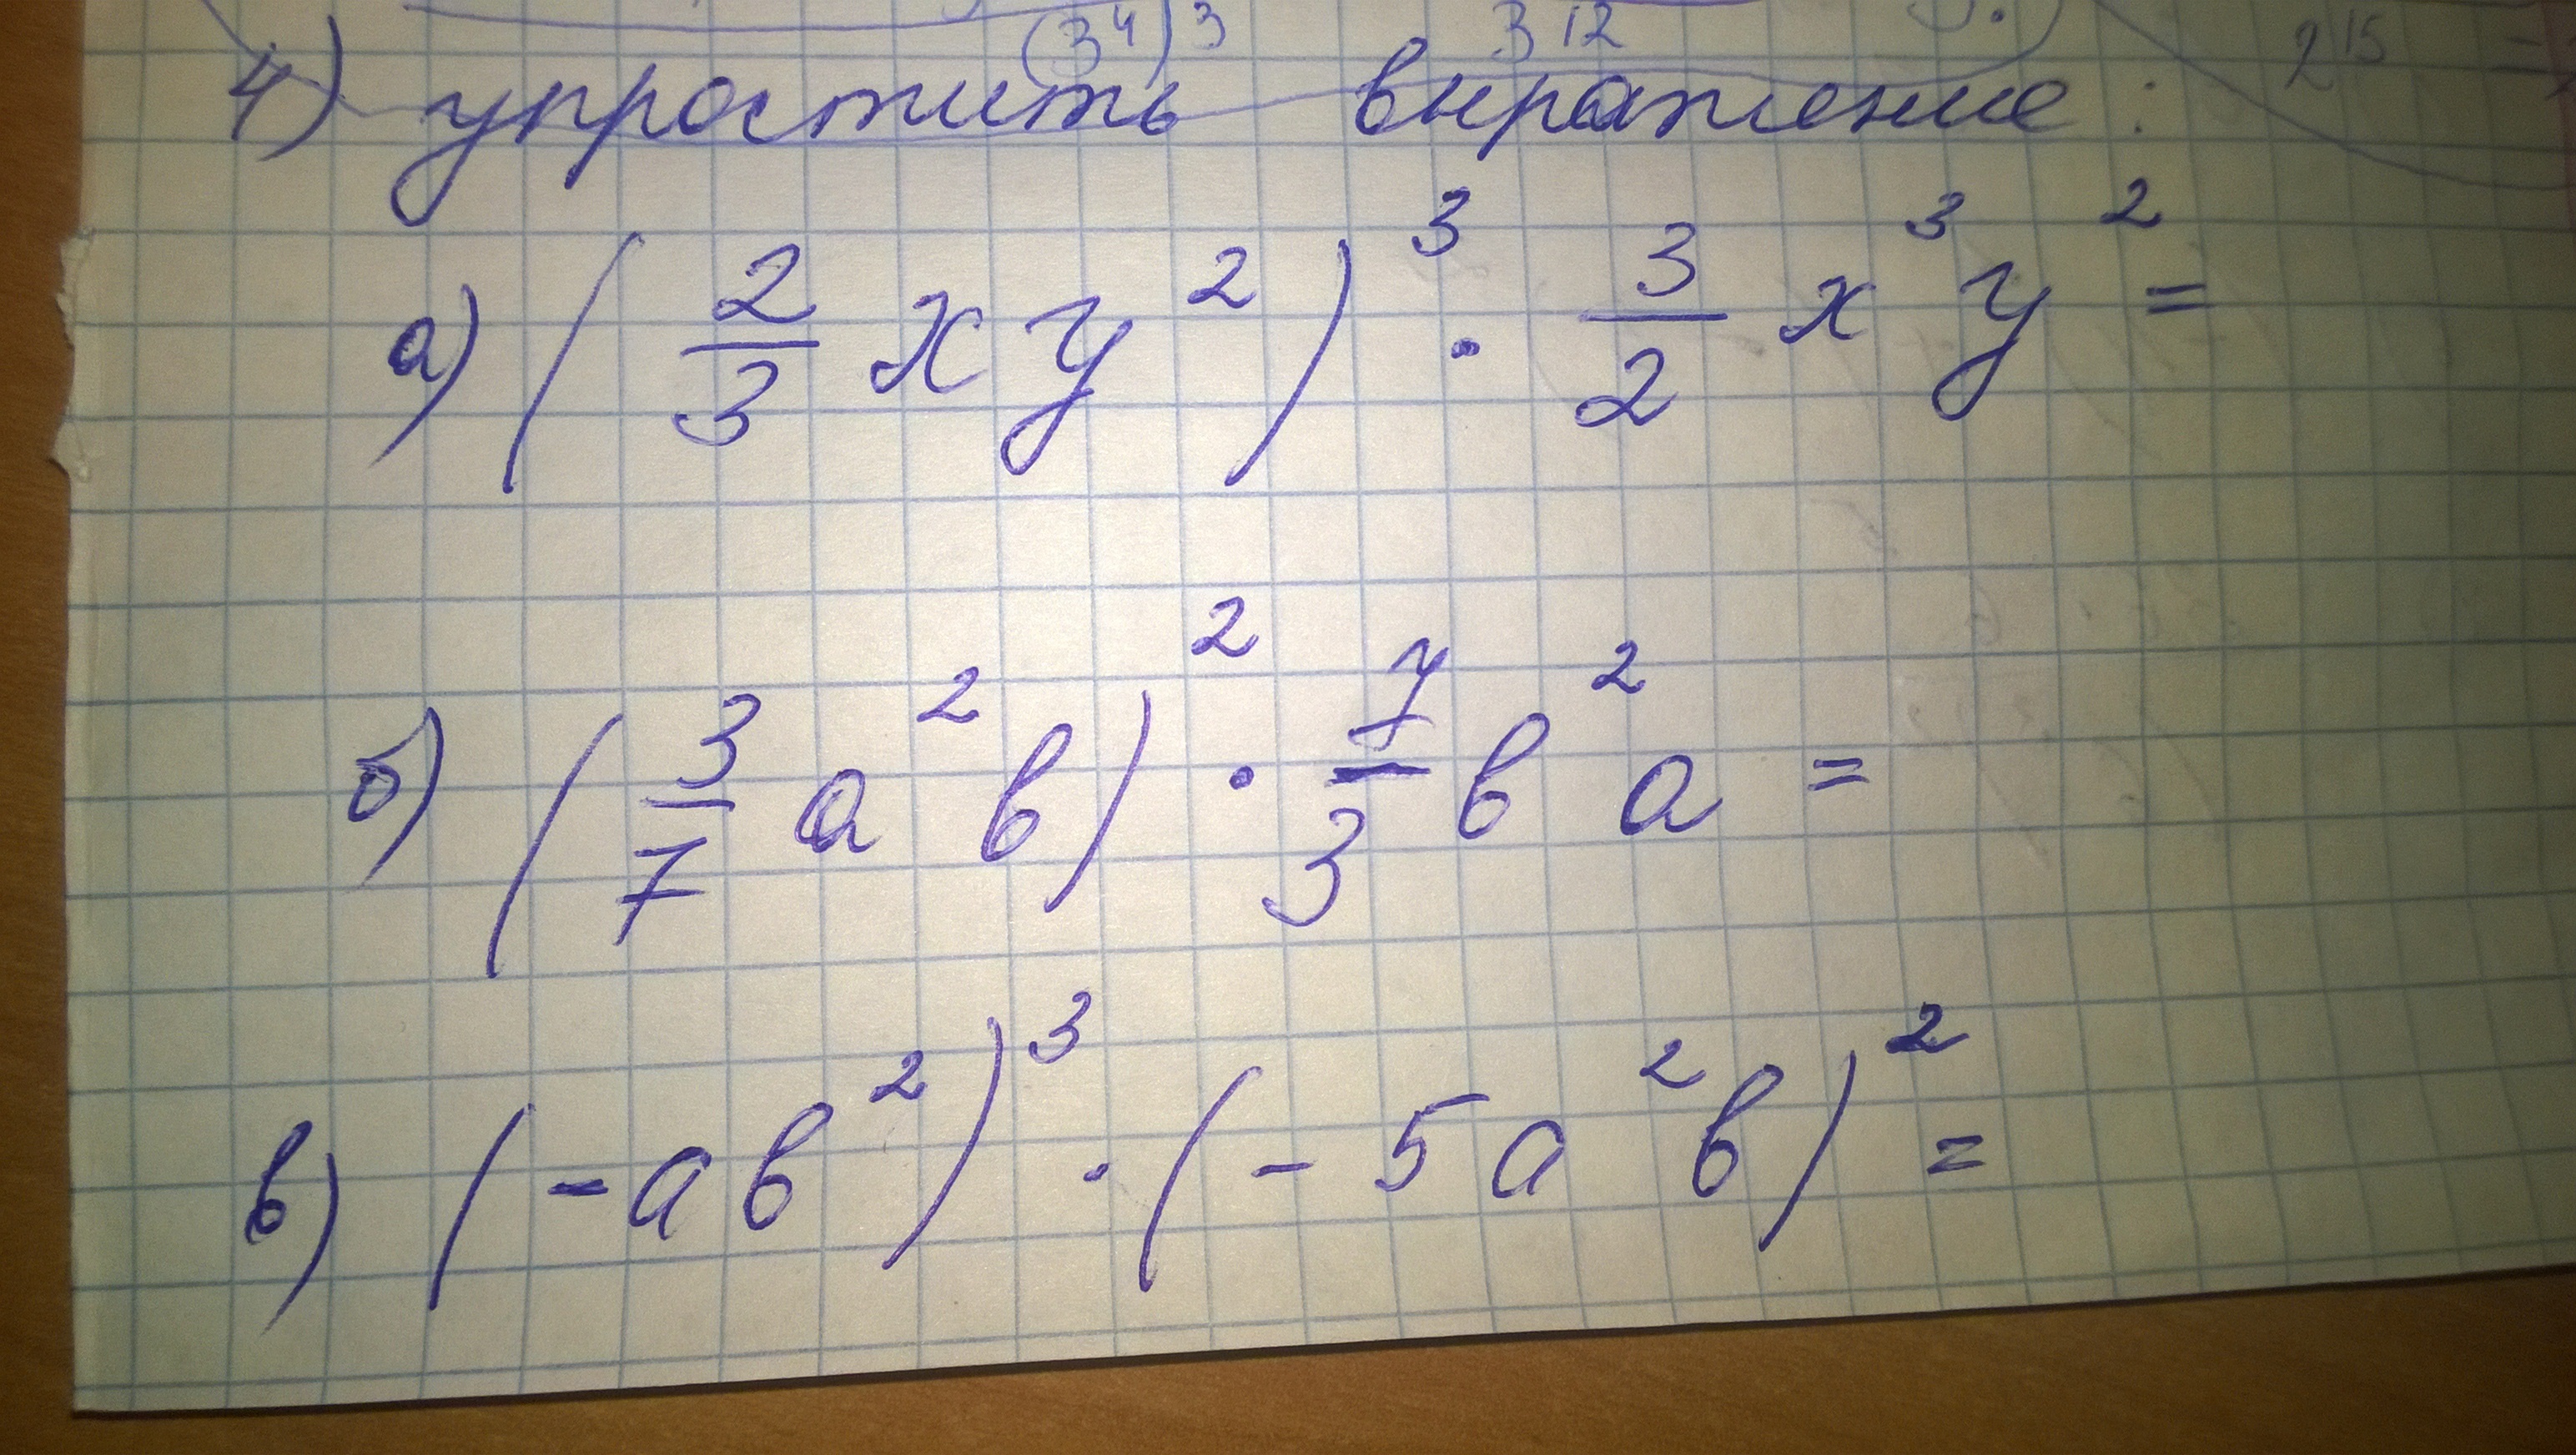 (3⁴)³ 3¹² 2¹⁵ =
4) упростить выражение:
а) (2/3 xy²)³ · 3/2 x³y² =
б) (3/7 a²b)² · 7/3 b²a =
в) (-ab²)³ · (-5a²b)² =